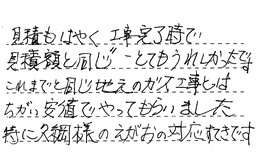 見積もはやく 工事完了時で
見積額と同じ とてもうれしかったです
これまでと同じ地元のガス工事とは
ちがい安価でやってもらいました
特に久綱様のえがおの対応すてきです